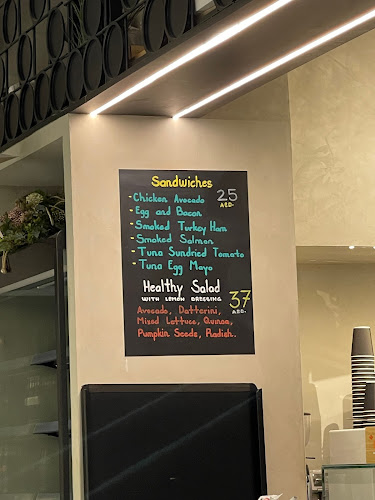 Sandwiches
- Chicken Avocado 25 AED.
- Egg and Bacon
- Smoked Turkey Ham
- Smoked Salmon
- Tuna Sundried Tomato
- Tuna Egg Mayo
Healthy Salad
WITH LEMON DRESSING 37 AED.
Avocado, Datterini,
Mixed Lettuce, Quinoa,
Pumpkin Seeds, Radish.